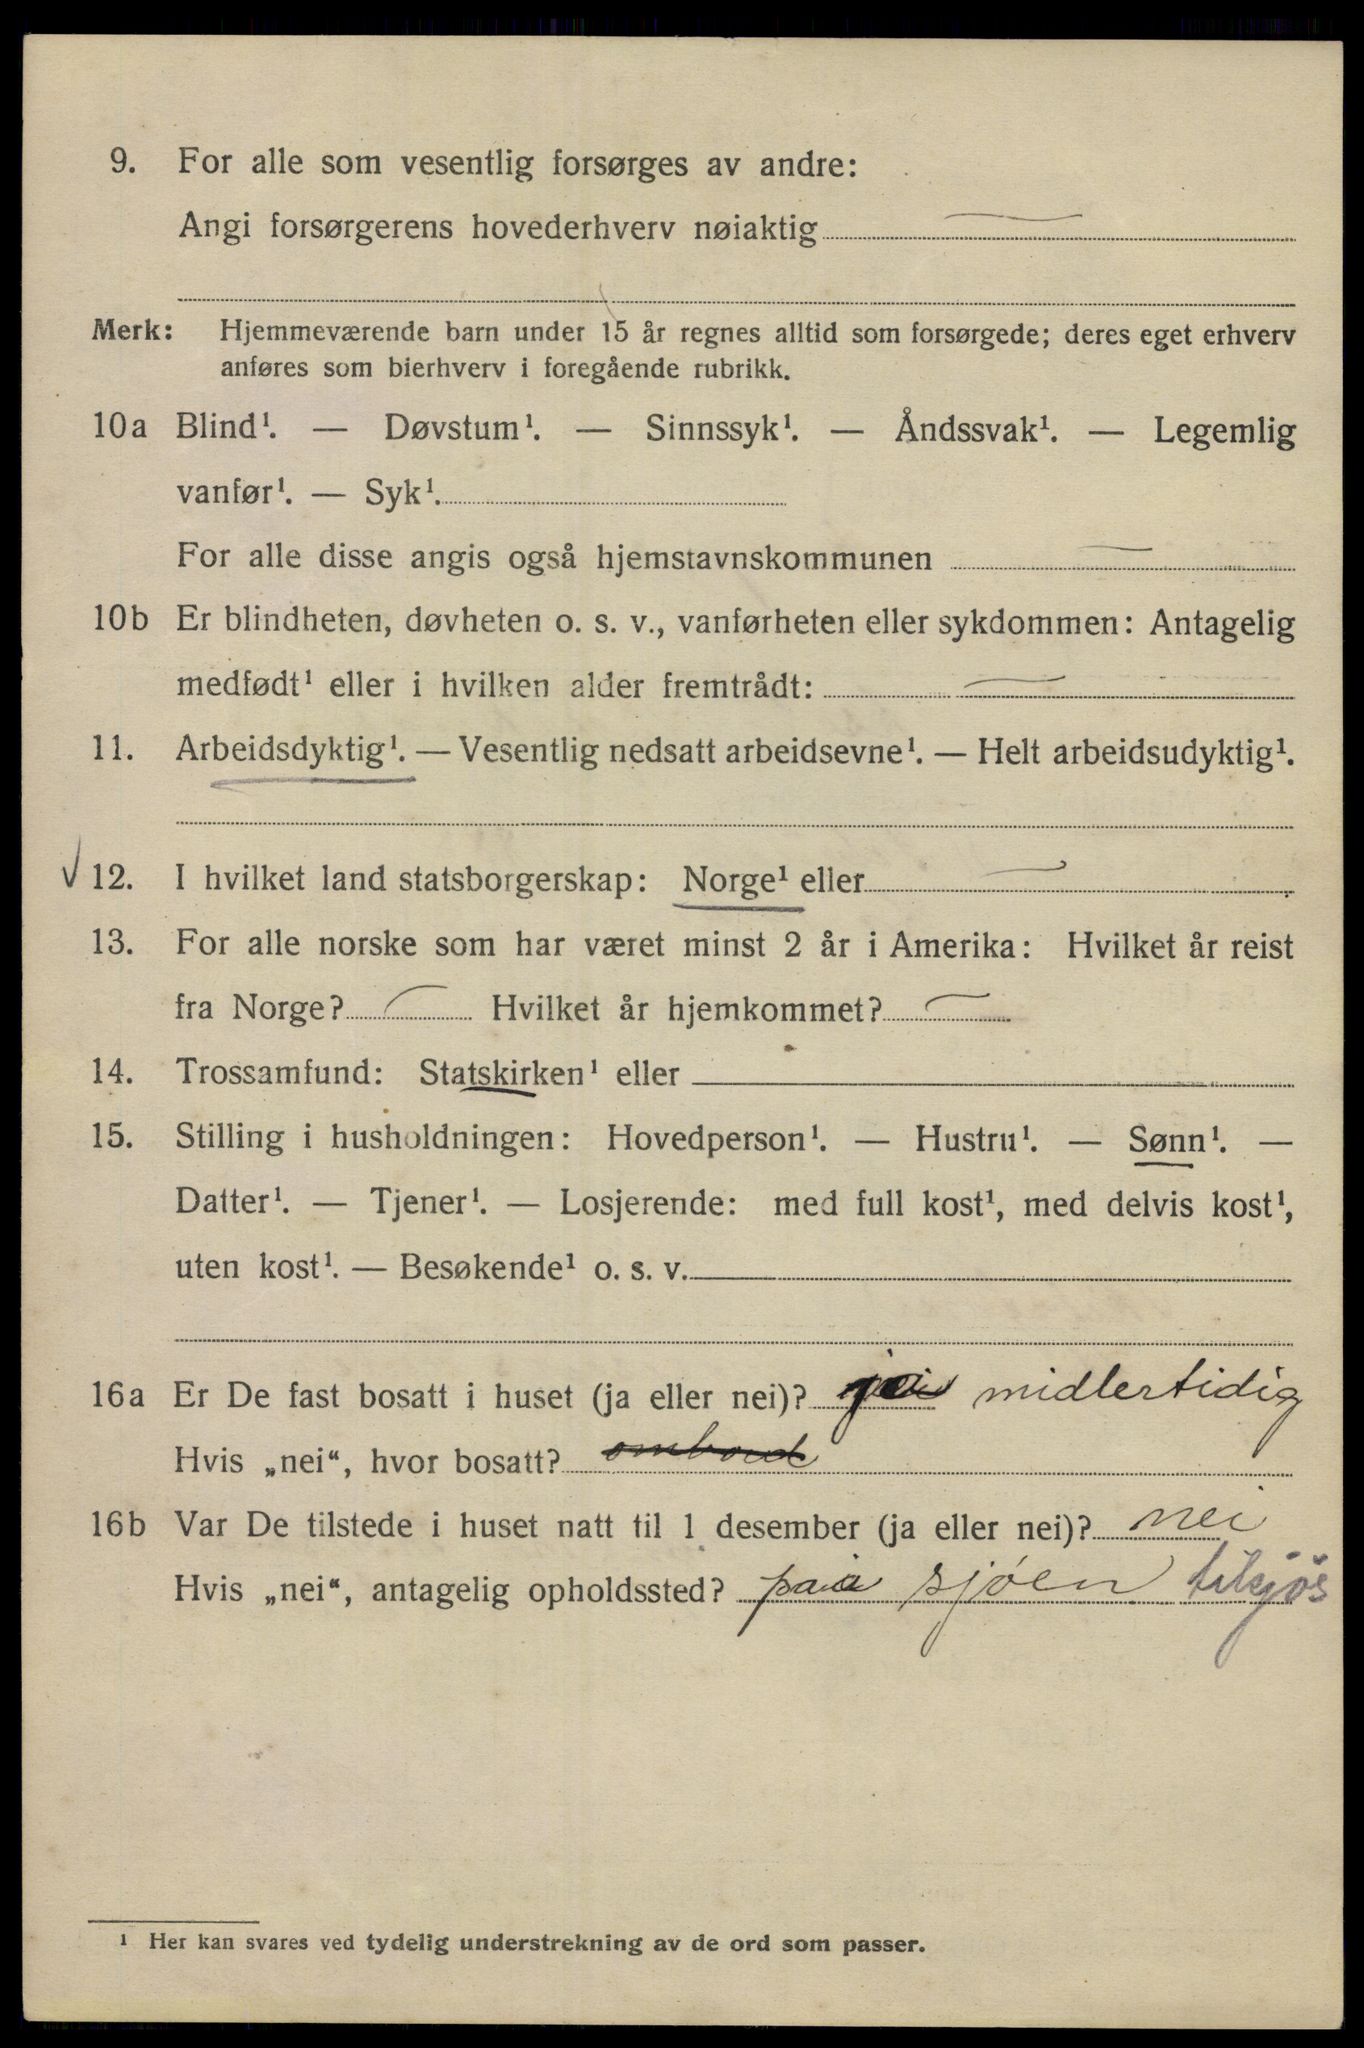 9. For alle som vesentlig forsørges av andre:
Angi forsørgerens hovederhverv nøiaktig —
Merk: Hjemmeværende barn under 15 år regnes alltid som forsørgede; deres eget erhverv
anføres som bierhverv i foregående rubrikk.
10a Blind¹. — Døvstum¹. — Sinnssyk¹. — Åndssvak¹. — Legemlig
vanfør¹. — Syk¹.
For alle disse angis også hjemstavnskommunen —
10b Er blindheten, døvheten o. s. v., vanførheten eller sykdommen: Antagelig
medfødt¹ eller i hvilken alder fremtrådt: —
11. Arbeidsdyktig¹. — Vesentlig nedsatt arbeidsevne¹. — Helt arbeidsudyktig¹.
√ 12. I hvilket land statsborgerskap: Norge¹ eller —.
13. For alle norske som har været minst 2 år i Amerika: Hvilket år reist
fra Norge? — Hvilket år hjemkommet? —
14. Trossamfund: Statskirken¹ eller
15. Stilling i husholdningen: Hovedperson¹. — Hustru¹. — Sønn¹. —
Datter¹. — Tjener¹. — Losjerende: med full kost¹, med delvis kost¹,
uten kost¹. — Besøkende¹ o. s. v.
16a Er De fast bosatt i huset (ja eller nei)? ja midlertidig
Hvis „nei“, hvor bosatt? ombord
16b Var De tilstede i huset natt til 1 desember (ja eller nei)? nei
Hvis „nei“, antagelig opholdssted? paa sjøen tilsjøs
¹ Her kan svares ved tydelig understrekning av de ord som passer.